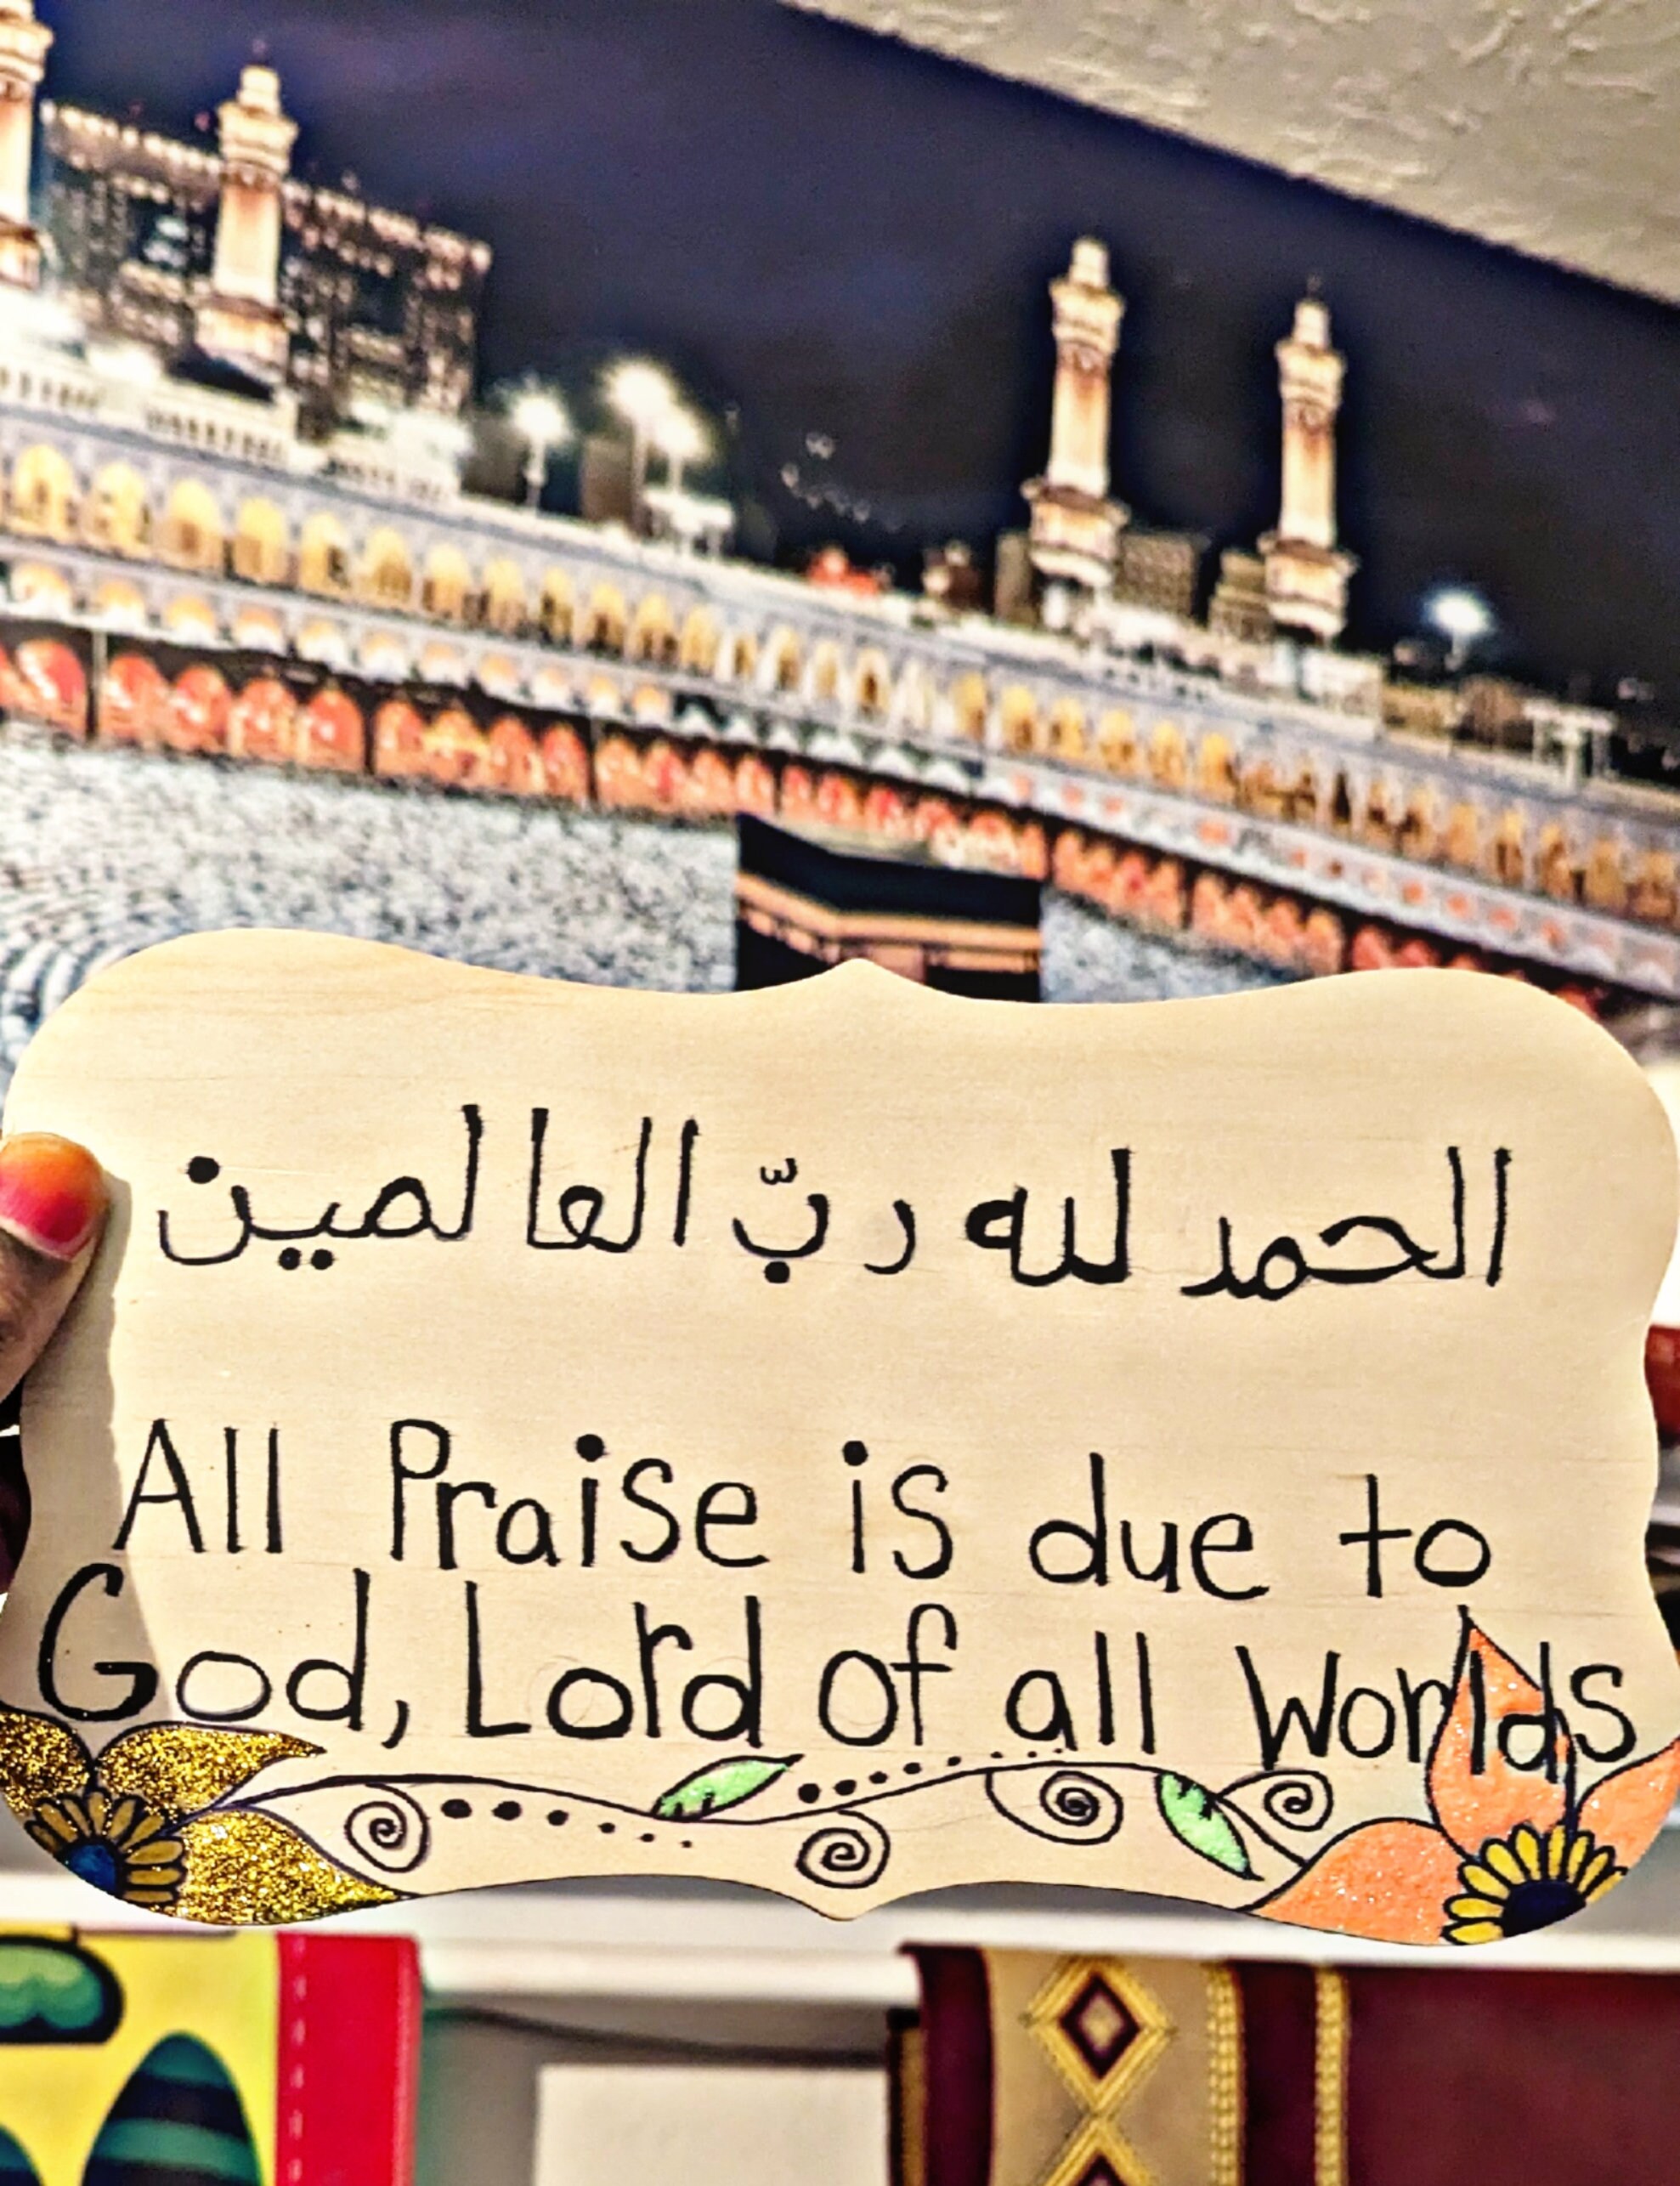 الحمد لله ربّ العالمين
All Praise is due to
God, Lord of all Worlds